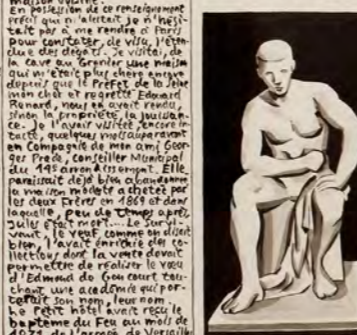 maison voisine.
En possession de ce renseignement
précis qui m'alertait je n'hési-
tait pas à me rendre à Paris
pour constater, de visu, l'éten-
due des dégats. Je visitai, de
la cave au Grenier une maison
qui m'était plus chère encore
depuis que le Préfet de la Seine
mon cher et regretté Edouard
Renard, nous en avait rendu,
sinon la propriété, la jouissan-
ce. Je l'avait visitée, encore in-
tacte, quelques mois auparavant
en Compagnie de mon ami Geor-
ges Prade, conseiller Municipal
du arrondissement. Elle
paraissait déjà bien abandonnée
la maison modeste achetée par
les deux frères en 1869 et dans
laquelle, peu de temps après,
Jules était mort.... Le Survi-
vant, le veuf comme on disait
bien, l'avait enrichie des co-
llections dont la vente devait
permettre de réaliser le voeu
d'Edmond de Goncourt tou-
chant une académie qui por-
terait son nom, leur nom.
Le Petit hôtel avait reçu le
baptême du Feu au mois de
de Versaille